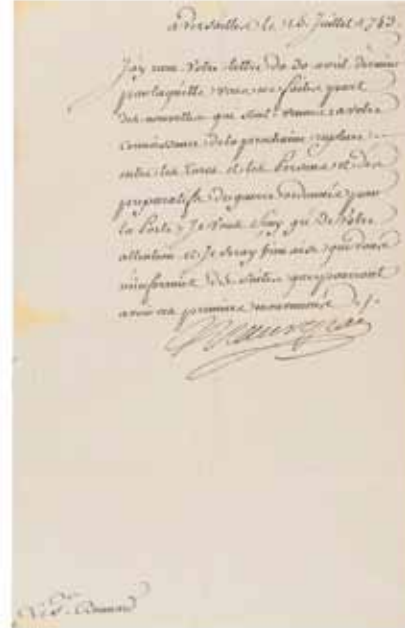 a Versailles le 16 Juillet 1743.
J'ay reçu votre lettre du 30 avril dernier
par laquelle vous me faites part
des nouvelles qui sont venues a votre
connoissance de la prochaine rupture
entre les Turcs et les Persans et des
preparatifs de guerre ordonnés par
la Porte, Je vous sçay gré de votre
attention et Je seray bien aise que vous
m'informiez des suites que pourront
avoir ces premiers mouvemens ./.